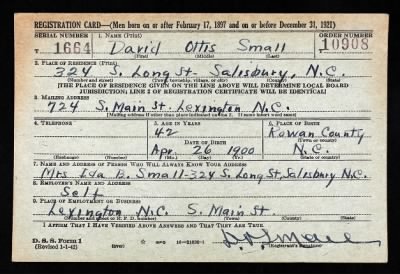 REGISTRATION CARD—(Men born on or after February 17, 1897 and on or before December 31, 1921)
SERIAL NUMBER 1. NAME (Print) ORDER NUMBER
T 1664 David Ottis Small 10908
(First) (Middle) (Last)
2. PLACE OF RESIDENCE (Print)
324 S. Long St. Salisbury, N.C.
(Number and street) (Town, township, village, or city) (County) (State)
[THE PLACE OF RESIDENCE GIVEN ON THE LINE ABOVE WILL DETERMINE LOCAL BOARD
JURISDICTION; LINE 2 OF REGISTRATION CERTIFICATE WILL BE IDENTICAL]
3. MAILING ADDRESS
724 S. Main St. Lexington N.C.
[Mailing address if other than place indicated on line 2. If same insert word same]
4. TELEPHONE 5. AGE IN YEARS 6. PLACE OF BIRTH
42 Rowan County
DATE OF BIRTH (Town or county)
Apr. 26 1900 N.C.
(Exchange) (Number) (Mo.) (Day) (Yr.) (State or country)
7. NAME AND ADDRESS OF PERSON WHO WILL ALWAYS KNOW YOUR ADDRESS
Mrs Ida B. Small-324 S. Long St, Salisbury N.C.
8. EMPLOYER'S NAME AND ADDRESS
Self
9. PLACE OF EMPLOYMENT OR BUSINESS
Lexington N.C. S. Main St.
(Number and street or R. F. D. number) (Town) (County) (State)
I AFFIRM THAT I HAVE VERIFIED ABOVE ANSWERS AND THAT THEY ARE TRUE.
D. S. S. Form 1
(Revised 1-1-42) (over) D.O. Small
(Registrant's signature)